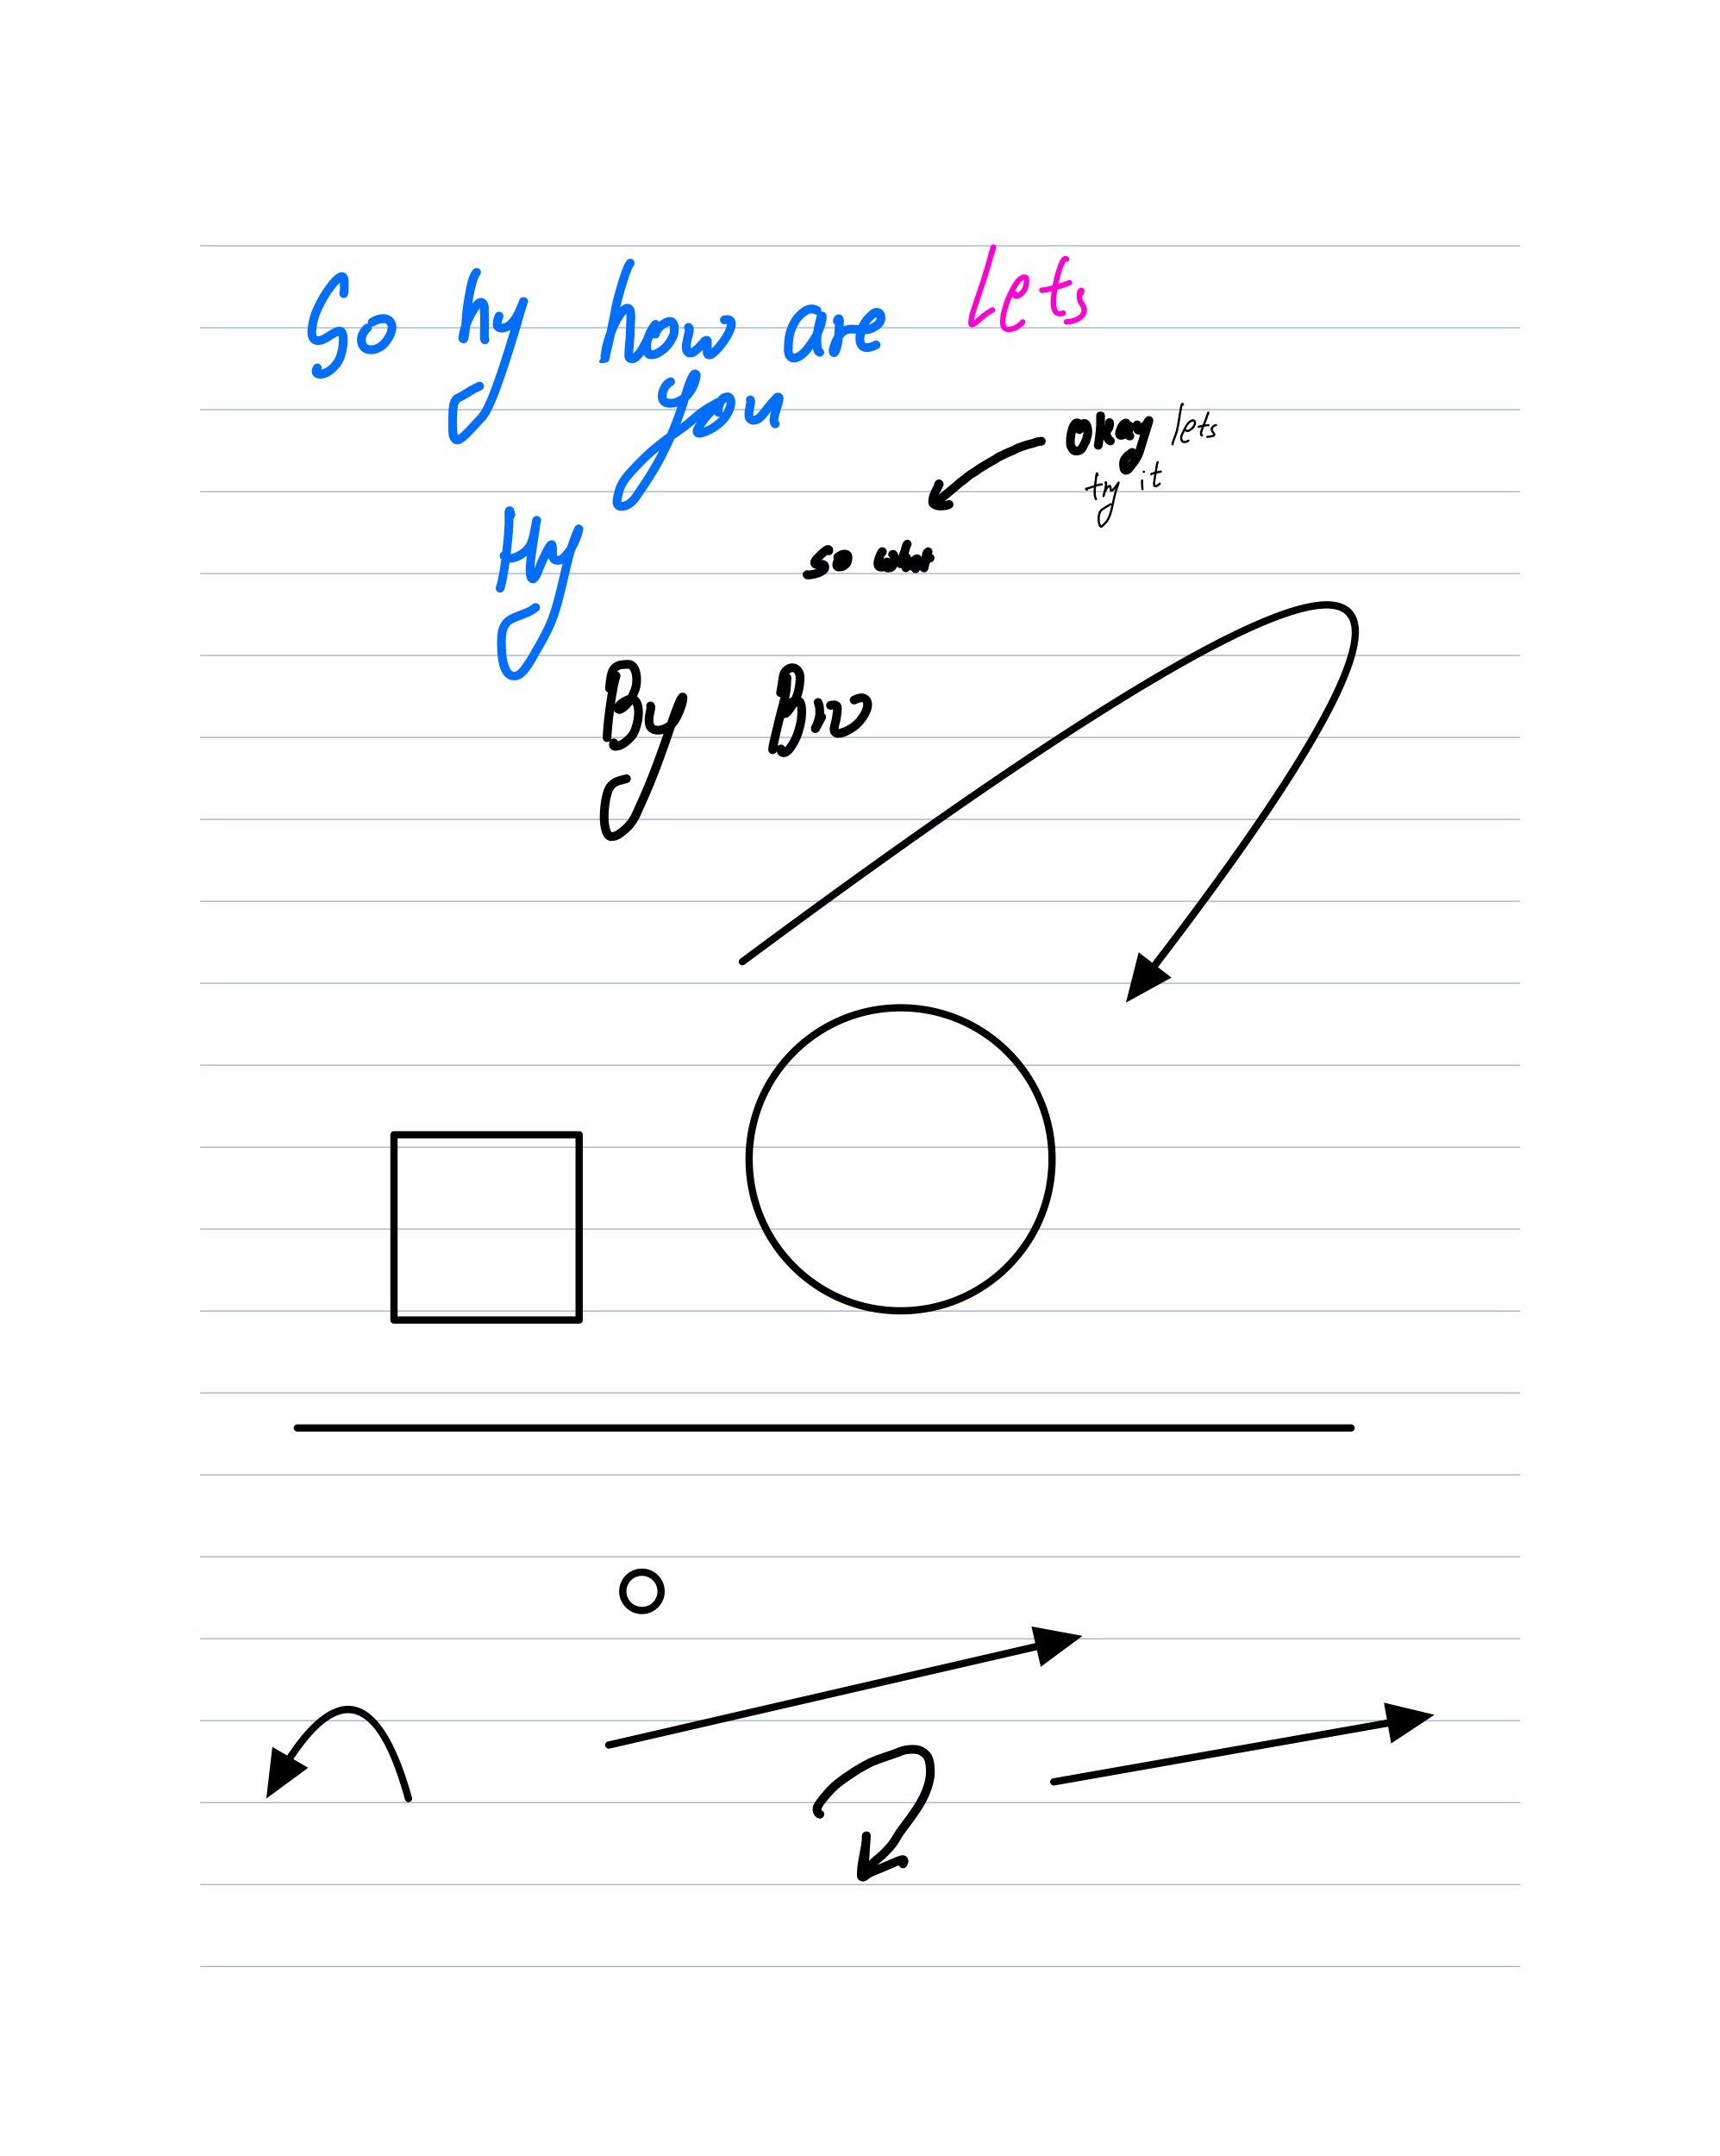 So hy how are
you
Lets
okay lets
try it
Hy
so
By Bro